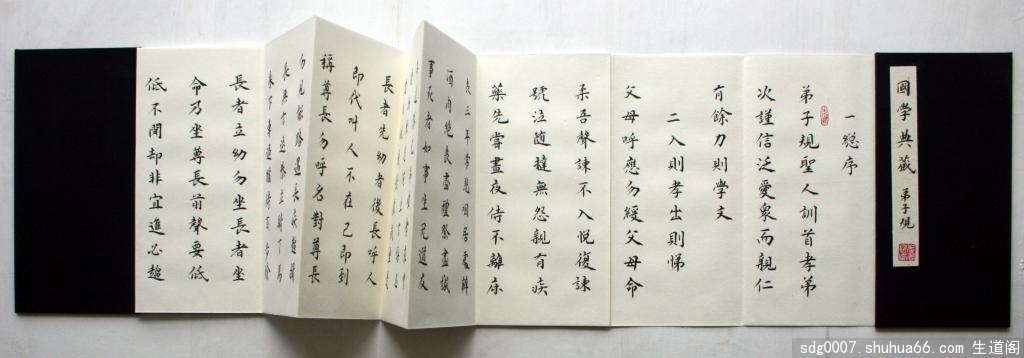 國學典藏 弟子規
一緫序
弟子規聖人訓首孝弟
次謹信泛愛衆而親仁
有餘力則學文
二入則孝出則悌
父母呼應勿緩父母命
柔吾聲諫不入悅復諫
號泣隨撻無怨親有疾
藥先嘗晝夜侍不離床
喪三年常悲咽居處
酒肉絕喪盡禮祭盡誠
事死者如事生兄道友
長者先幼者後長呼人
即代叫人不在己即到
稱尊長勿呼名對尊長
勿見能路遇長疾趨揖
長無言退恭立騎下馬
乘下車過猶待百步餘
長者立幼勿坐長者坐
命乃坐尊長前聲要低
低不聞却非宜進必趨
sdg0007.shuhua66.com 生道阁